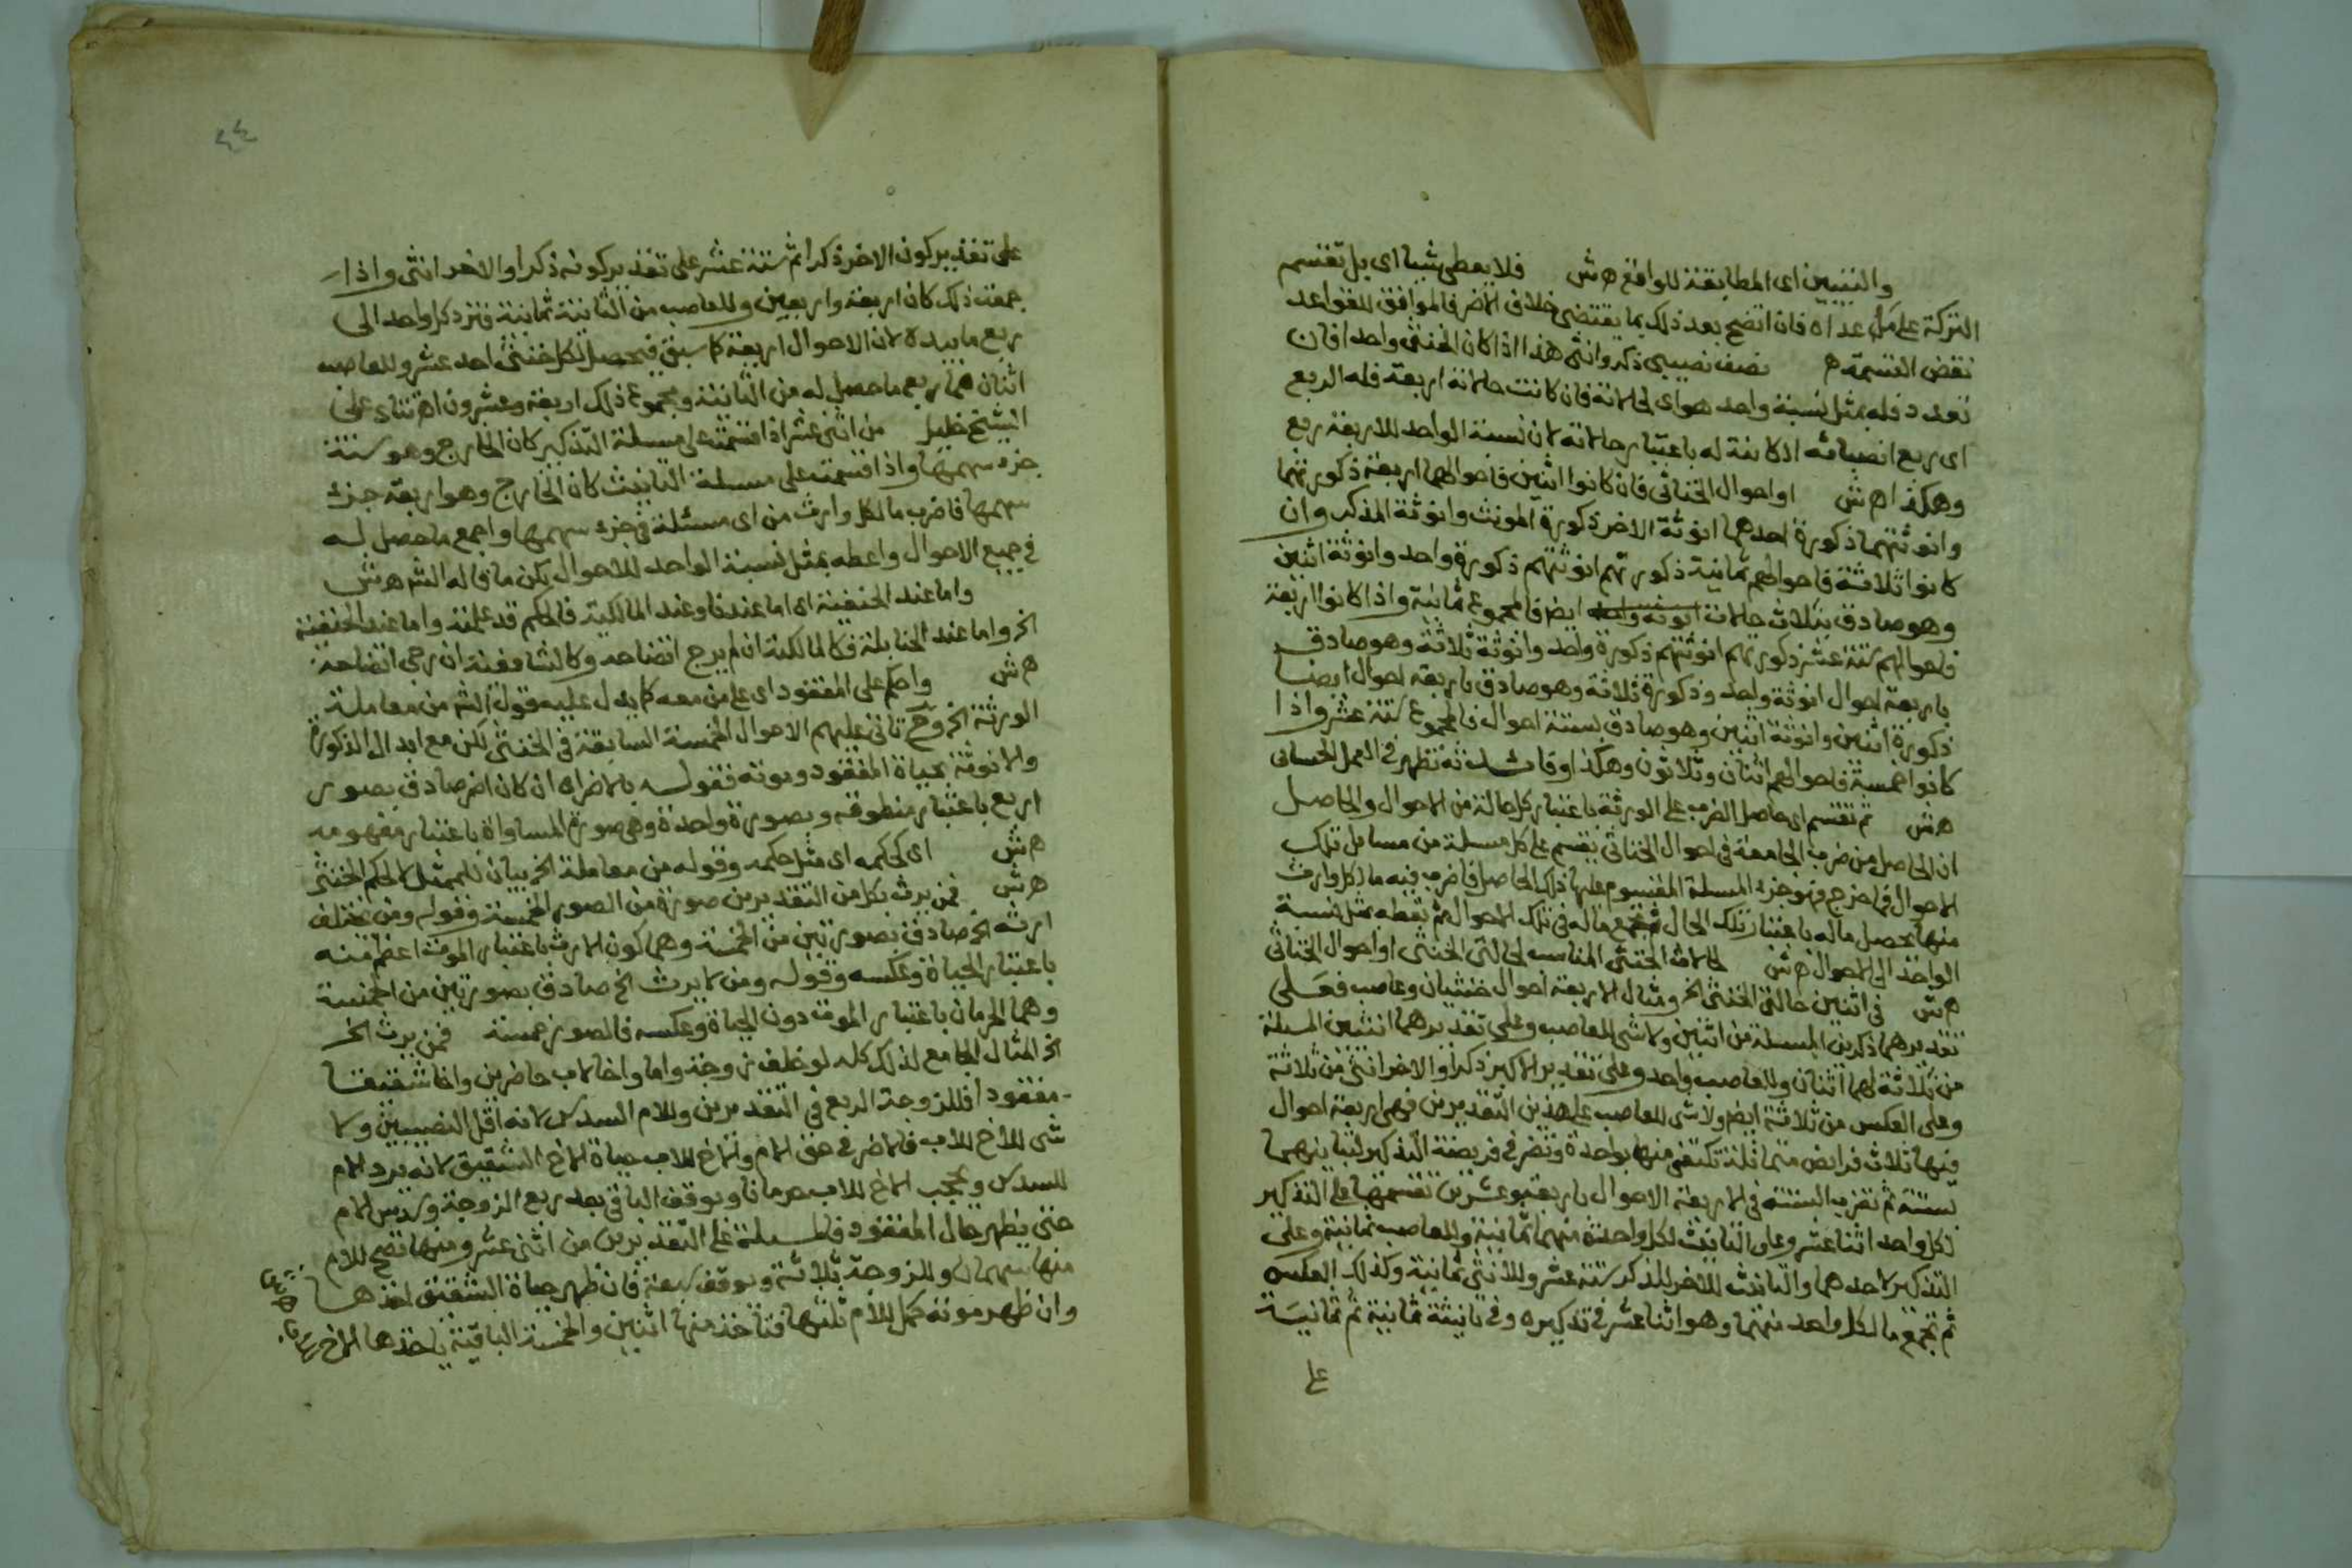 والتبيين اى المطابقة للواقع ه ش فلا يعطى شيئا اى بل تقسم
التركة على من عداه فان اتضح بعد ذلك بما يقتضى خلاف الاضر فالموافق للقواعد
نقض القسمة ه نصف نصيبى ذكر وانثى هذا اذا كان الخنثى واحدا فان
تعدد فله بمثل نسبة واحد هواى لحالاته فان كانت حالاته اربعة فله الربع
اى ربع انصبائه الكائنة له باعتبار حالاته لان نسبة الواحد للاربعة ربع
وهكذا اه ش او احوال الخناثى فان كانوا اثنين فاحوالهما اربعة ذكورتهما
وانوثتهما ذكورة احدهما انوثة الاخر ذكورة المونث وانوثة المذكر وان
كانوا ثلاثة فاحوالهم ثمانية ذكورتهم انوثتهم ذكورة واحد وانوثة اثنين
وهو صادق بثلاث حالات ايضا فالمجموع ثمانية واذا كانوا اربعة
فاحوالهم ستة عشر ذكورتهم انوثتهم ذكورة واحد وانوثة ثلاثة وهو صادق
باربعة احوال انوثة واحد وذكورة ثلاثة وهو صادق باربعة احوال ايضا
ذكورة اثنين وانوثة اثنين وهو صادق بستة احوال فالمجموع ستة عشر واذا
كانوا خمسة فاحوالهم اثنان وثلاثون وهكذا تظهر فى العمل الحسابى
ه ش ثم تقسم اى حاصل الضرب على الورثة باعتبار كل حالة من الاحوال والحاصل
ان الحاصل من ضرب الجامعة فى احوال الخناثى يقسم على كل مسئلة من مسائل تلك
الاحوال فما خرج فهو جزء المسئلة المقسوم عليها ذلك الحاصل فاضرب فيه ما لكل وارث
منها يحصل ماله باعتبار تلك الحال فتجمع ماله فى تلك الاحوال ثم تعطه بمثل نسبة
الواحد الى الاحوال ه ش لحالات الخنثى المناسب لحالتى الخنثى او احوال الخناثى
ه ش فى اثنين حالتى الخنثى الخ ومثال الاربعة احوال خنثيان وعاصب فعلى
تقديرهما ذكرين المسئلة من اثنين ولاشى للعاصب وعلى تقديرهما انثيين المسئلة
من ثلاثة لهما اثنان وللعاصب واحد وعلى تقدير الاكبر ذكرا والاخر انثى من ثلاثة
وعلى العكس من ثلاثة ايضا ولا شى للعاصب على هذين التقديرين فهى اربعة احوال
فيها ثلاث فرايض متماثلة تكتفى منها بواحدة وتضرب فى فريضة التذكير لتباينهما
بستة ثم تضرب الستة فى الاربعة الاحوال باربعة وعشرين تقسمها على التذكير
لكل واحد اثنا عشر وعلى التانيث لكل واحدة منهما ثمانية وللعاصب ثمانية وعلى
التذكير لاحدهما والتانيث للاخر للذكر ستة عشر وللانثى ثمانية وكذلك العكس
ثم تجمع ما لكل واحد منهما وهو اثنا عشر فى تذكيره وفى تانيثه ثمانية ثم ثمانية
على
٤٤
على تقدير كون الاخر ذكرا ثم ستة عشر على تقدير كونه ذكرا والاخر انثى واذا
جمعت ذلك كان اربعة واربعين وللعاصب من الثانية ثمانية فترد كل واحد الى
ربع ما بيده لان الاحوال اربعة كما سبق فيحصل لكل خنثى احد عشر وللعاصب
اثنان هما ربع ما حصل له من الثانية ومجموع ذلك اربعة وعشرون اه تتاى على
الشيخ خليل من اثنى عشر اذا قسمته على مسئلة التذكير كان الخارج وهو ستة
جزء سهمها واذا قسمته على مسئلة التانيث كان الخارج وهو اربعة جزء
سهمها فاضرب ما لكل وارث من اى مسئلة فى جزء سهمها واجمع ما حصل له
فى جميع الاحوال واعطه بمثل نسبة الواحد للاحوال يكن ما قاله الش ه ش
واما عند الحنفية اى اما عندنا وعند المالكية فالحكم قد علمته واما عند الحنفية
الخ واما عند الحنابلة فكالمالكية ان لم يرج اتضاحه وكالشافعية ان رجى اتضاحه
ه ش واحكم على المفقود اى على من معه كما يدل عليه قول الش من معاملة
الورثة الخ وح تاتى عليهم الاحوال الخمسة السابقة فى الخنثى لكن مع ابدال الذكورة
والانوثة بحياة المفقود وموته فقوله بالاضراه ان كان اضر صادق بصور
اربع باعتبار منطوقه وبصورة واحدة وهى صورة المساواة باعتبار مفهومه
ه ش اى كحكمه اى مثل حكمه وقوله من معاملة الخ بيان للمثل لا لحكم الخنثى
ه ش فمن يرث بكل من التقديرين صورة من الصور الخمسة وقوله ومن يختلف
ارثه الخ صادق بصورتين من الخمسة وهما كون الارث باعتبار الموت اعظم منه
باعتبار الحياة وعكسه وقوله ومن لا يرث الخ صادق بصورتين من الخمسة
وهما الحرمان باعتبار الموت دون الحياة وعكسه فالصور خمسة فمن يرث الخ
الخ المثال الجامع لذلك كله لو خلف زوجة واما واخا لاب حاضرين واخا شقيقا
مفقودا فللزوجة الربع فى التقديرين وللام السدس لانه اقل النصيبين ولا
شى للاخ للاب فالاضر فى حق الام والاخ للاب حياة الاخ الشقيق لانه يرد الام
للسدس ويحجب الاخ للاب حرمانا ويوقف الباقى بعد ربع الزوجة وسدس الام
حتى يظهر حال المفقود فالمسئلة على التقديرين من اثنى عشر ومنها تصح للام
منها سهمان وللزوجة ثلاثة ويوقف سبعة فان ظهر حياة الشقيق اخذها
وان ظهر موته كمل للام ثلثها فتاخذ منها اثنين والخمسة الباقية ياخذها الاخ